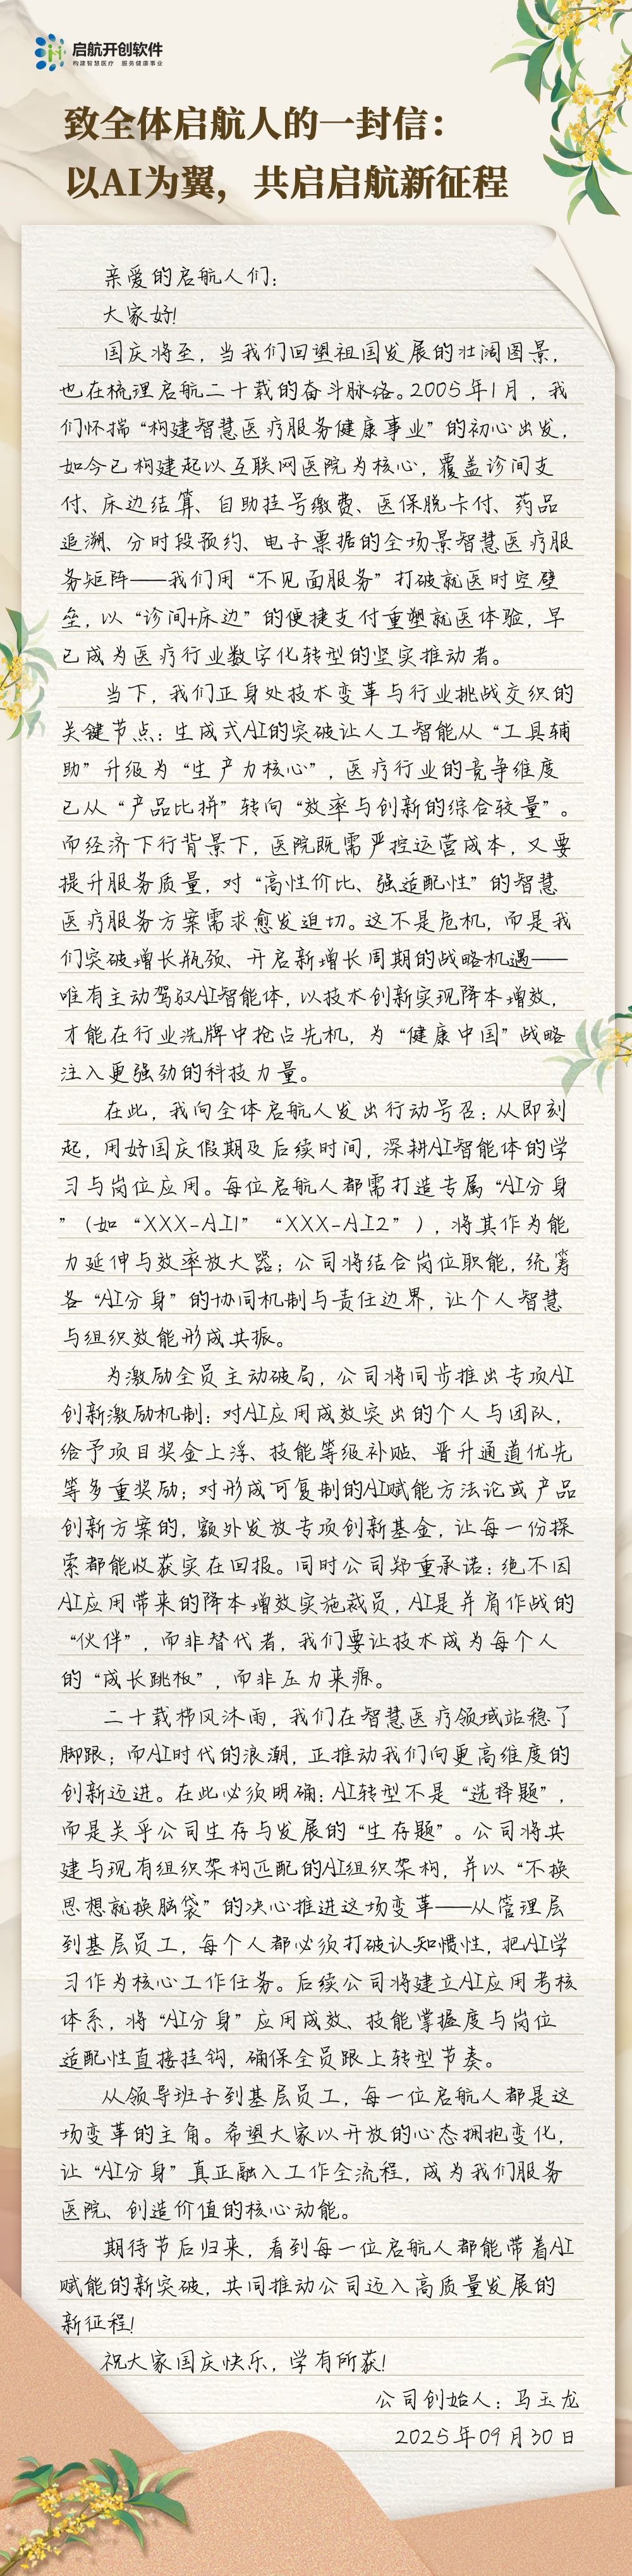 启航开创软件
构建智慧医疗 服务健康事业
致全体启航人的一封信：
以AI为翼，共启启航新征程
亲爱的启航人们：
大家好！
国庆将至，当我们回望祖国发展的壮阔图景，
也在梳理启航二十载的奋斗脉络。2005年1月，我
们怀揣“构建智慧医疗服务健康事业”的初心出发，
如今已构建起以互联网医院为核心，覆盖诊间支
付、床边结算、自助挂号缴费、医保脱卡付、药品
追溯、分时段预约、电子票据的全场景智慧医疗服
务矩阵——我们用“不见面服务”打破就医时空壁
垒，以“诊间+床边”的便捷支付重塑就医体验，早
已成为医疗行业数字化转型的坚实推动者。
当下，我们正身处技术变革与行业挑战交织的
关键节点：生成式AI的突破让人工智能从“工具辅
助”升级为“生产力核心”，医疗行业的竞争维度
已从“产品比拼”转向“效率与创新的综合较量”。
而经济下行背景下，医院既需严控运营成本，又要
提升服务质量，对“高性价比、强适配性”的智慧
医疗服务方案需求愈发迫切。这不是危机，而是我
们突破增长瓶颈、开启新增长周期的战略机遇——
唯有主动驾驭AI智能体，以技术创新实现降本增效，
才能在行业洗牌中抢占先机，为“健康中国”战略
注入更强劲的科技力量。
在此，我向全体启航人发出行动号召：从即刻
起，用好国庆假期及后续时间，深耕AI智能体的学
习与岗位应用。每位启航人都需打造专属“AI分身
”（如“XXX-AI1”“XXX-AI2”），将其作为能
力延伸与效率放大器；公司将结合岗位职能，统筹
各“AI分身”的协同机制与责任边界，让个人智慧
与组织效能形成共振。
为激励全员主动破局，公司将同步推出专项AI
创新激励机制：对AI应用成效突出的个人与团队，
给予项目奖金上浮、技能等级补贴、晋升通道优先
等多重奖励；对形成可复制的AI赋能方法论或产品
创新方案的，额外发放专项创新基金，让每一份探
索都能收获实在回报。同时公司郑重承诺：绝不因
AI应用带来的降本增效实施裁员，AI是并肩作战的
“伙伴”，而非替代者，我们要让技术成为每个人
的“成长跳板”，而非压力来源。
二十载栉风沐雨，我们在智慧医疗领域站稳了
脚跟；而AI时代的浪潮，正推动我们向更高维度的
创新迈进。在此必须明确：AI转型不是“选择题”，
而是关乎公司生存与发展的“生存题”。公司将共
建与现有组织架构匹配的AI组织架构，并以“不换
思想就换脑袋”的决心推进这场变革——从管理层
到基层员工，每个人都必须打破认知惯性，把AI学
习作为核心工作任务。后续公司将建立AI应用考核
体系，将“AI分身”应用成效、技能掌握度与岗位
适配性直接挂钩，确保全员跟上转型节奏。
从领导班子到基层员工，每一位启航人都是这
场变革的主角。希望大家以开放的心态拥抱变化，
让“AI分身”真正融入工作全流程，成为我们服务
医院、创造价值的核心动能。
期待节后归来，看到每一位启航人都能带着AI
赋能的新突破，共同推动公司迈入高质量发展的
新征程！
祝大家国庆快乐，学有所获！
公司创始人：马玉龙
2025年09月30日